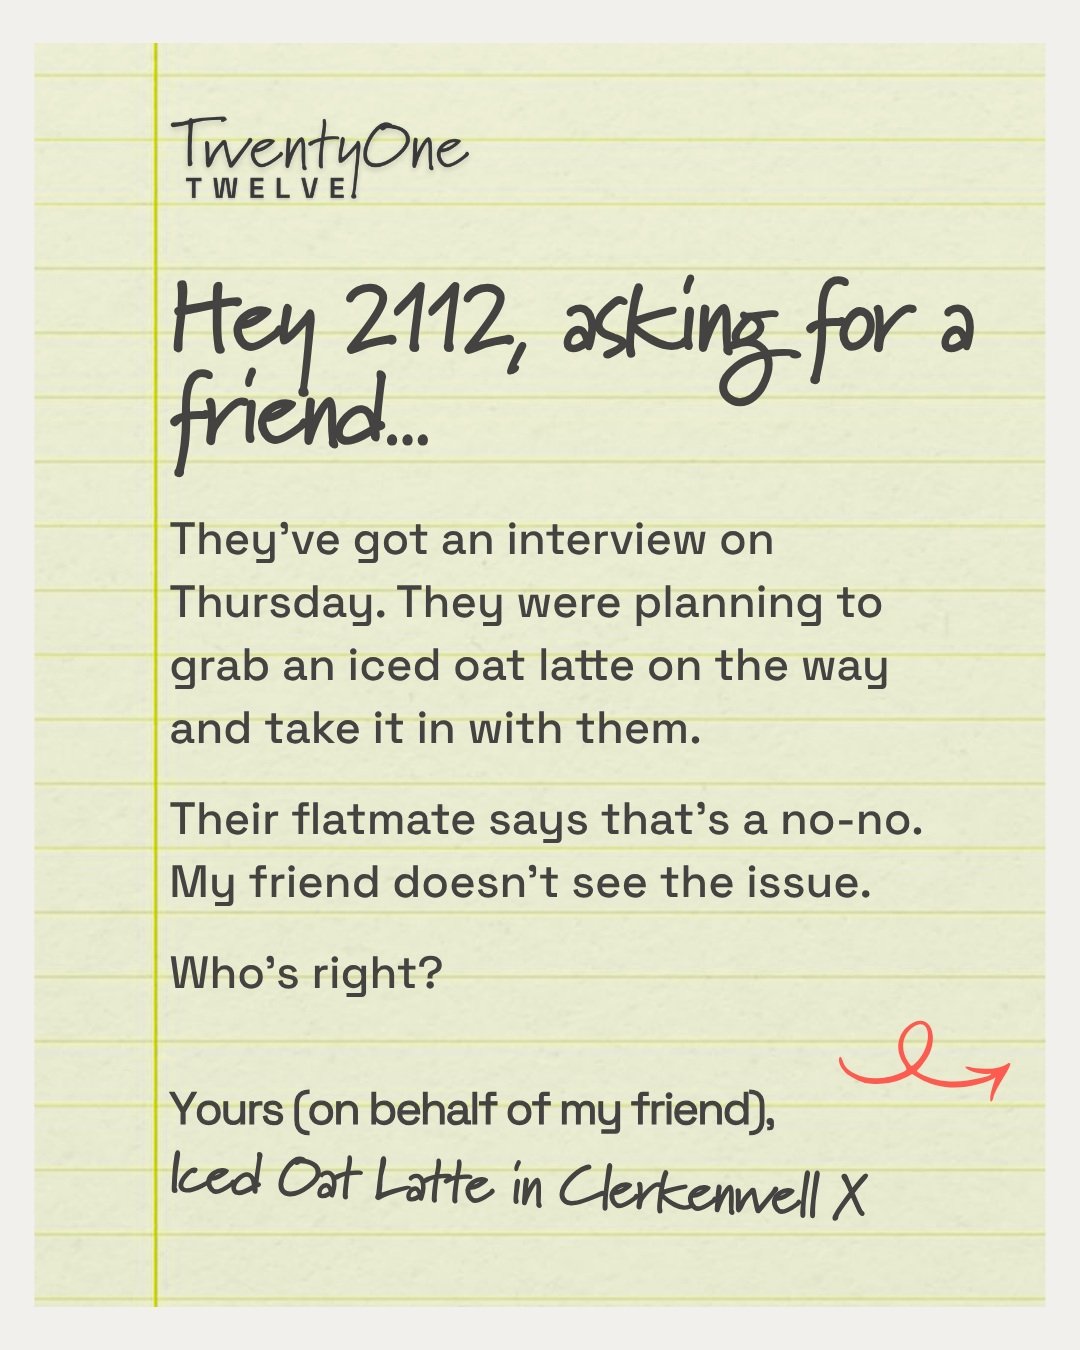 TwentyOne
TWELVE
Hey 2112, asking for a
friend...
They’ve got an interview on
Thursday. They were planning to
grab an iced oat latte on the way
and take it in with them.
Their flatmate says that’s a no-no.
My friend doesn’t see the issue.
Who’s right?
Yours (on behalf of my friend),
Iced Oat Latte in Clerkenwell X